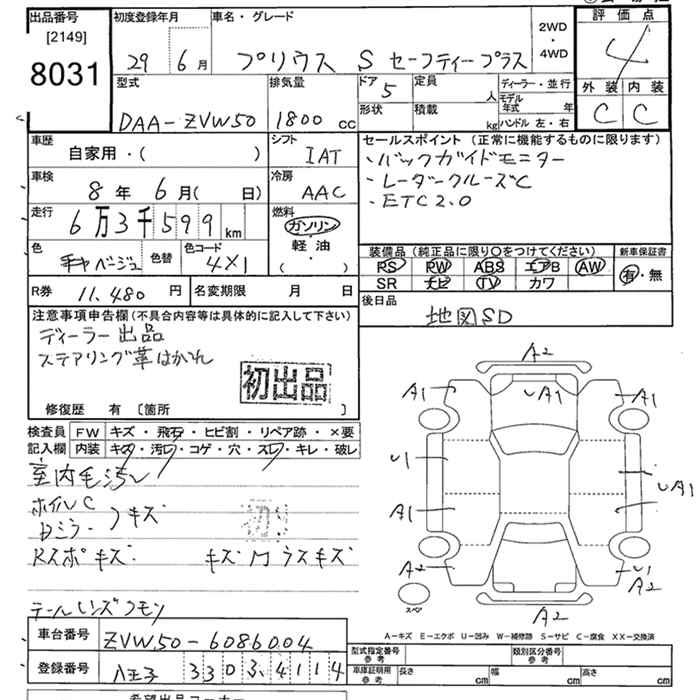 出品番号 初度登録年月 車名・グレード 2WD・4WD 評価点
[2149]
8031
29 6月 プリウス S セーフティープラス 4
型式 排気量 ドア 5 定員 人 ディーラー・並行 外装 内装
DAA-ZVW50 1800cc 形状 積載 kg モデル年式 年 C C
ハンドル 左・右
車歴 自家用・( ) シフト IAT セールスポイント (正常に機能するものに限ります)
・バックガイドモニター
車検 8年6月( 日) 冷房 AAC ・レーダークルーズC
・ETC2.0
走行 6万3千599km 燃料 ガソリン
軽油
( ・ )
色 ベージュ 色替 色コード 4X1
装備品 (純正品に限り○をつけてください) 新車保証書
RS RW ABS エアB AW 有・無
SR ナビ TV カワ
R券 11,480円 名変期限 月 日 後日品 地図SD
注意事項申告欄 (不具合内容等は具体的に記入して下さい)
ディーラー出品
ステアリング革はがれ
初出品
修復歴 有 [箇所 ]
検査員記入欄 FW キズ・飛石・ヒビ割・リペア跡・×要
内装 キズ・汚レ・コゲ・穴・スレ・キレ・破レ
室内毛汚レ
ホイルC
ミラー キズ
Rスポキズ キズ ガラスキズ
テールレンズ
A2
A1 UA1 A1
U1 UA1
A1
A2 U1
A2
A2
スペ
A-キズ E-エクボ U-凹み W-補修跡 S-サビ C-腐食 XX-交換済
車台番号 ZVW50-6086004
型式指定番号 参考 類別区分番号 参考
登録番号 八王子 330 ふ 4114
車庫証明用 参考 長さ cm 幅 cm 高さ cm
希望出品コーナー